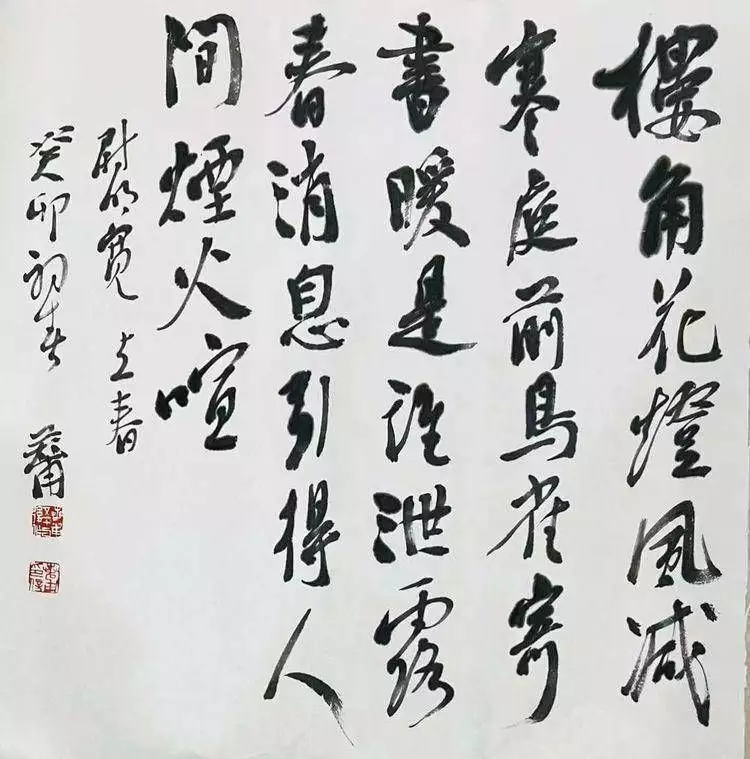 樓角花燈風减
寒庭前鳥雀寄
書暖是誰泄露
春消息引得人
間煙火喧
尉明寬立春
癸卯初春